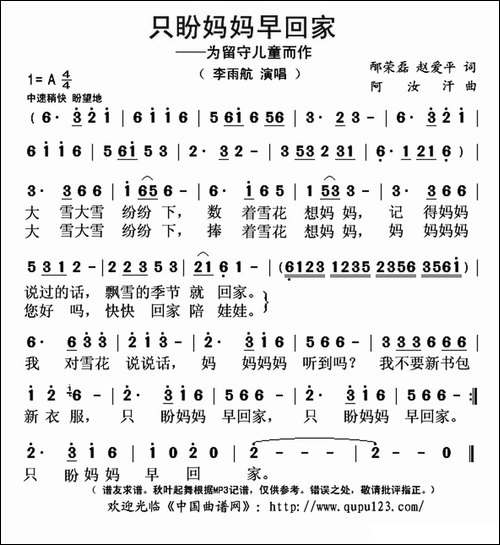 只盼妈妈早回家
——为留守儿童而作
（ 李雨航 演唱 ）
邴荣磊 赵爱平 词
阿 汝 汗 曲
1=A 4/4
中速稍快 盼望地
( 6· 3 2 1 | 6 1 1 6 | 5 6 1 6 5 6 | 3· 2 3 - | 6· 3 2 1 |
6 1 1 6 | 5 6 1 5 3 | 2· 3 2 - | 3 5 3 2 3 1 | 6· 1 2 1 6 ) |
3· 3 6 6 | 1 6 5 6 - | 6· 1 6 5 | 1 5 3 3 - | 3· 3 6 6 |
大 雪大雪 纷纷 下， 数 着雪花 想妈 妈， 记 得妈妈
大 雪大雪 纷纷 下， 捧 着雪花 想妈 妈， 妈 妈妈妈
5 3 1 2 - | 2 2 3 5 3 | 2 1 6 1 - | ( 6 1 2 3 1 2 3 5 2 3 5 6 3 5 6 1 ) |
说过的话， 飘雪的季节 就 回家。
您好 吗， 快快 回家 陪 娃娃。
6· 6 3 3 | 2 1 2 3 - | 2· 3 1 6 | 5 6 6 - | 3 3 3 6 6 6 |
我 对雪花 说说话， 妈 妈妈妈 听到吗？ 我不要新书包
1 2 6 - | 2· 3 1 6 | 5 6 6 - | 2· 3 1 6 | 5 6 6 - :||
新 衣 服， 只 盼妈妈 早回家， 只 盼妈妈 早回家。
2· 3 1 6 | 1 0 2 0 | 2 - - - | 2 - - 0 ||
只 盼妈妈 早 回 家。
（ 谱友求谱。秋叶起舞根据MP3记谱，仅供参考。错误之处，敬请批评指正。）
欢迎光临《中国曲谱网》：http://www.qupu123.com/